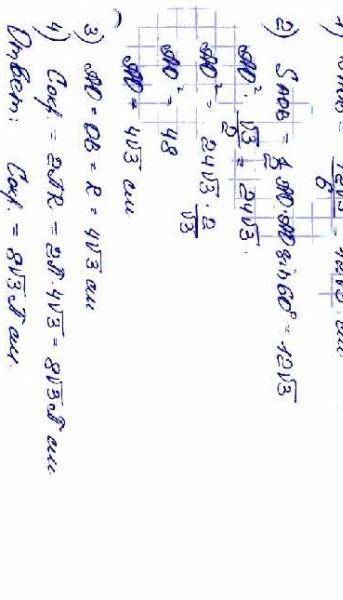 1) S = 72√3 / 6 = 12√3 см
2) S AOB = 1/2 AO · AO sin 60° = 12√3
AO² · √3/2 = 24√3.
AO² = 24√3 · 2/√3
AO² = 48
AO = 4√3 см
3) AO = OB = R = 4√3 см
4) Cокр. = 2πR = 2π · 4√3 = 8√3 π см
Ответ: Cокр. = 8√3 π см.